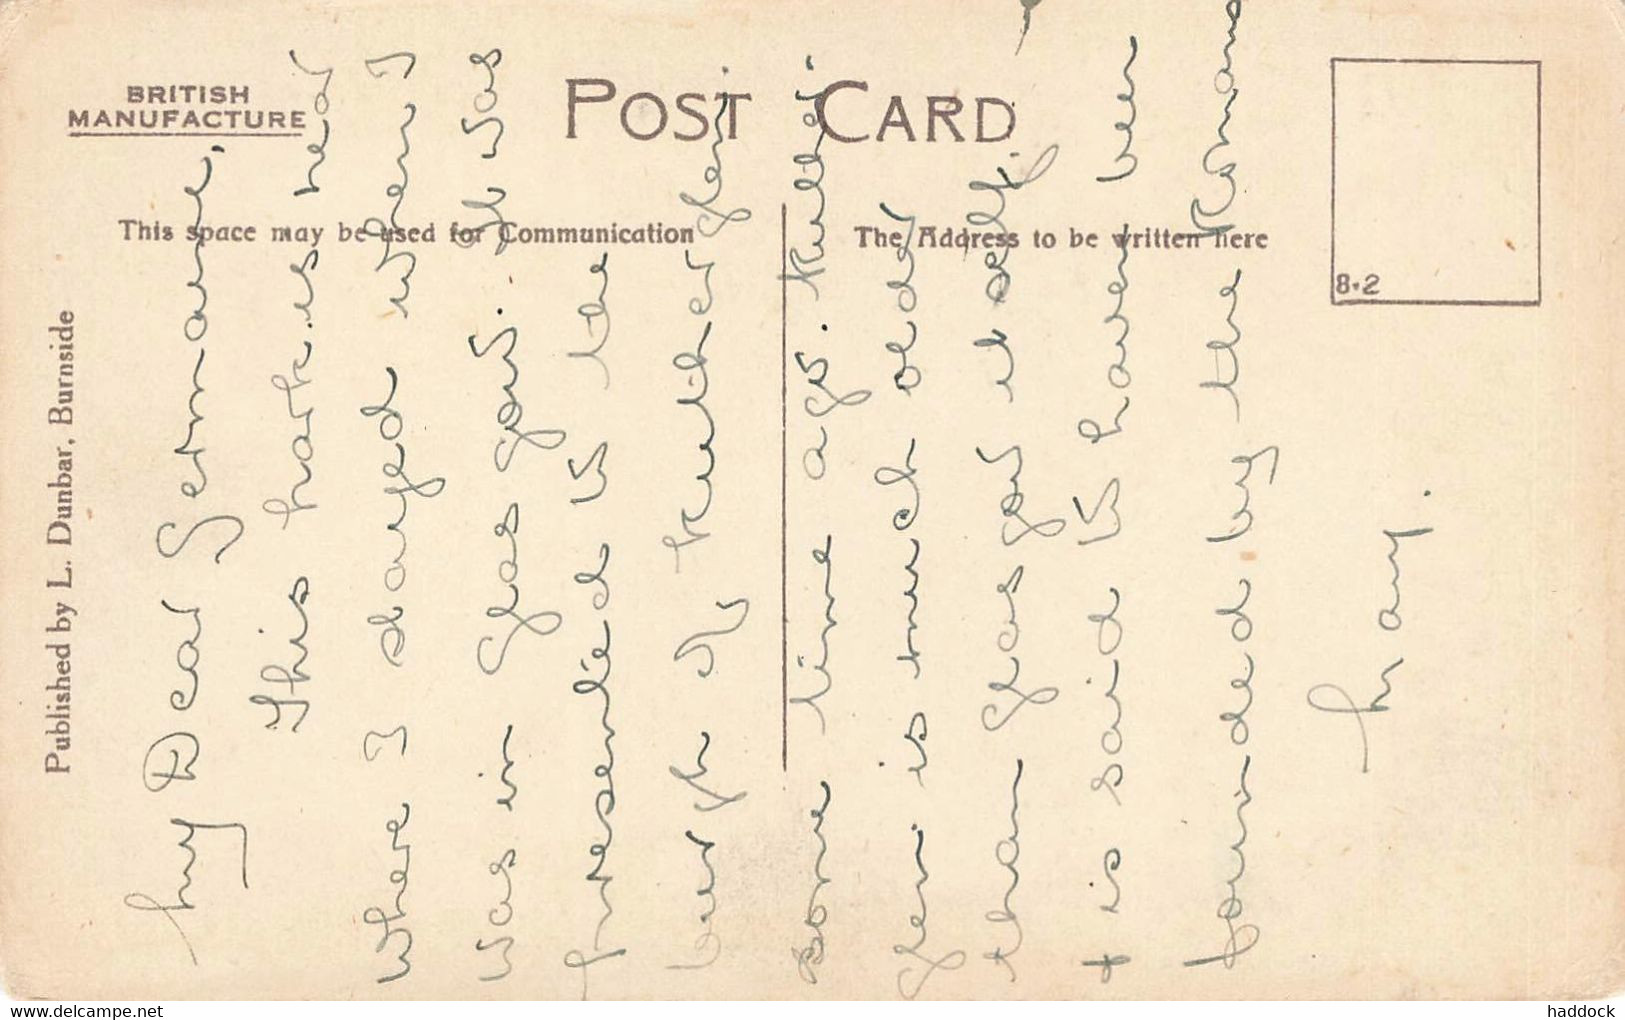 BRITISH
MANUFACTURE
POST CARD
This space may be used for Communication
The Address to be written here
8·2
Published by L. Dunbar, Burnside
My Dear Germaine,
This park is near
where I stayed when I
was in Glasgow. It was
presented to the
burgh of Rutherglen
some time ago. Ruther-
glen is much older
than Glasgow itself,
+ is said to have been
founded by the Romans
May.
www.delcampe.net
haddock